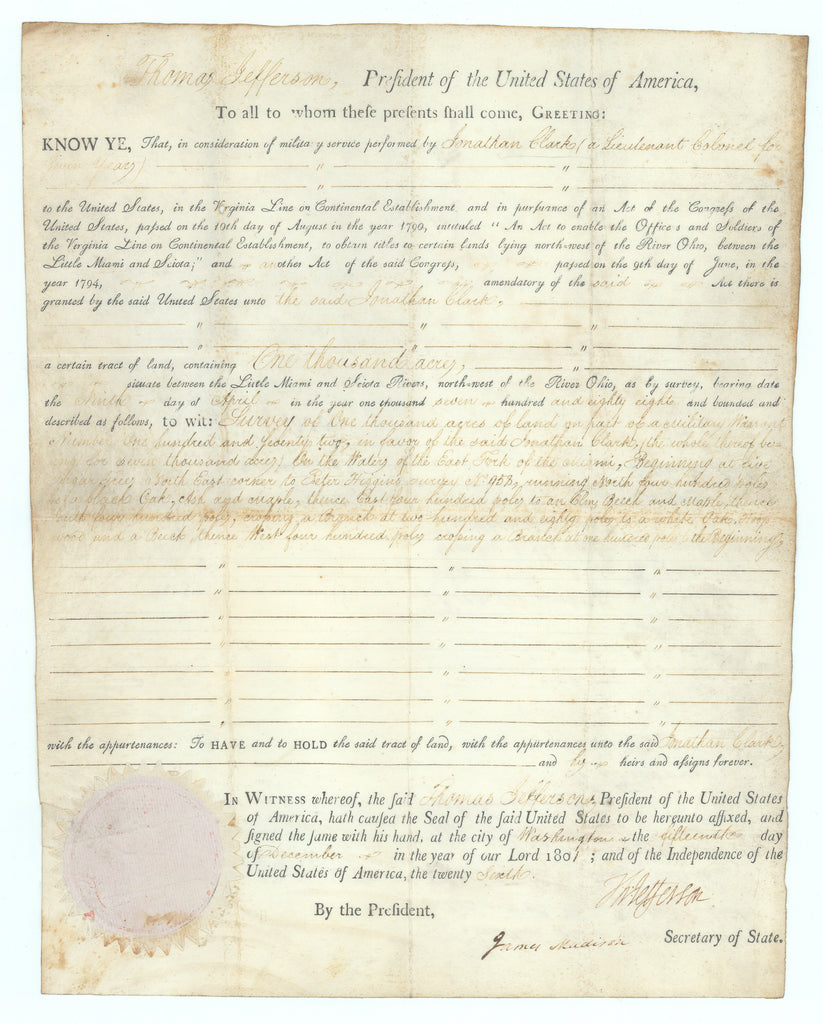 Thomas Jefferson, President of the United States of America,
To all to whom these presents shall come, GREETING:
KNOW YE, That, in consideration of military service performed by Jonathan Clark (a Lieutenant Colonel for
seven years)
to the United States, in the Virginia Line on Continental Establishment, and in pursuance of an Act of the Congress of the
United States, passed on the 10th day of August in the year 1790, intituled "An Act to enable the Officers and Soldiers of
the Virginia Line on Continental Establishment, to obtain titles to certain lands lying north-west of the River Ohio, between the
Little Miami and Sciota;" and another Act of the said Congress, passed on the 9th day of June, in the
year 1794, amendatory of the said Act there is
granted by the said United States unto the said Jonathan Clark,
a certain tract of land, containing One thousand acres,
situate between the Little Miami and Sciota Rivers, north-west of the River Ohio, as by survey, bearing date
the Ninth day of April in the year one thousand seven hundred and eighty eight and bounded and
described as follows, to wit: Survey of One thousand acres of land on part of a military Warrant
Number One hundred and Seventy two, in favor of the said Jonathan Clark, (the whole thereof being
for seven thousand acres) On the Waters of the East Fork of the miami, Beginning at five
sugar trees North East corner to Peter Higgins survey running North four hundred poles
to a black Oak, Ash and maple, thence East four hundred poles to an Elm, Beech and Maple, thence
South four hundred poles, crossing a Branch at two hundred and eighty poles to a white Oak,
wood and a Beech, thence West four hundred poles crossing a Branch at one hundred poles to the Beginning,
with the appurtenances: To HAVE and to HOLD the said tract of land, with the appurtenances unto the said Jonathan Clark,
and his heirs and assigns forever.
IN WITNESS whereof, the said Thomas Jefferson, President of the United States
of America, hath caused the Seal of the said United States to be hereunto affixed, and
signed the same with his hand, at the city of Washington the fifteenth day
of December in the year of our Lord 1801; and of the Independence of the
United States of America, the twenty Sixth.
Th Jefferson
By the President,
James Madison Secretary of State.